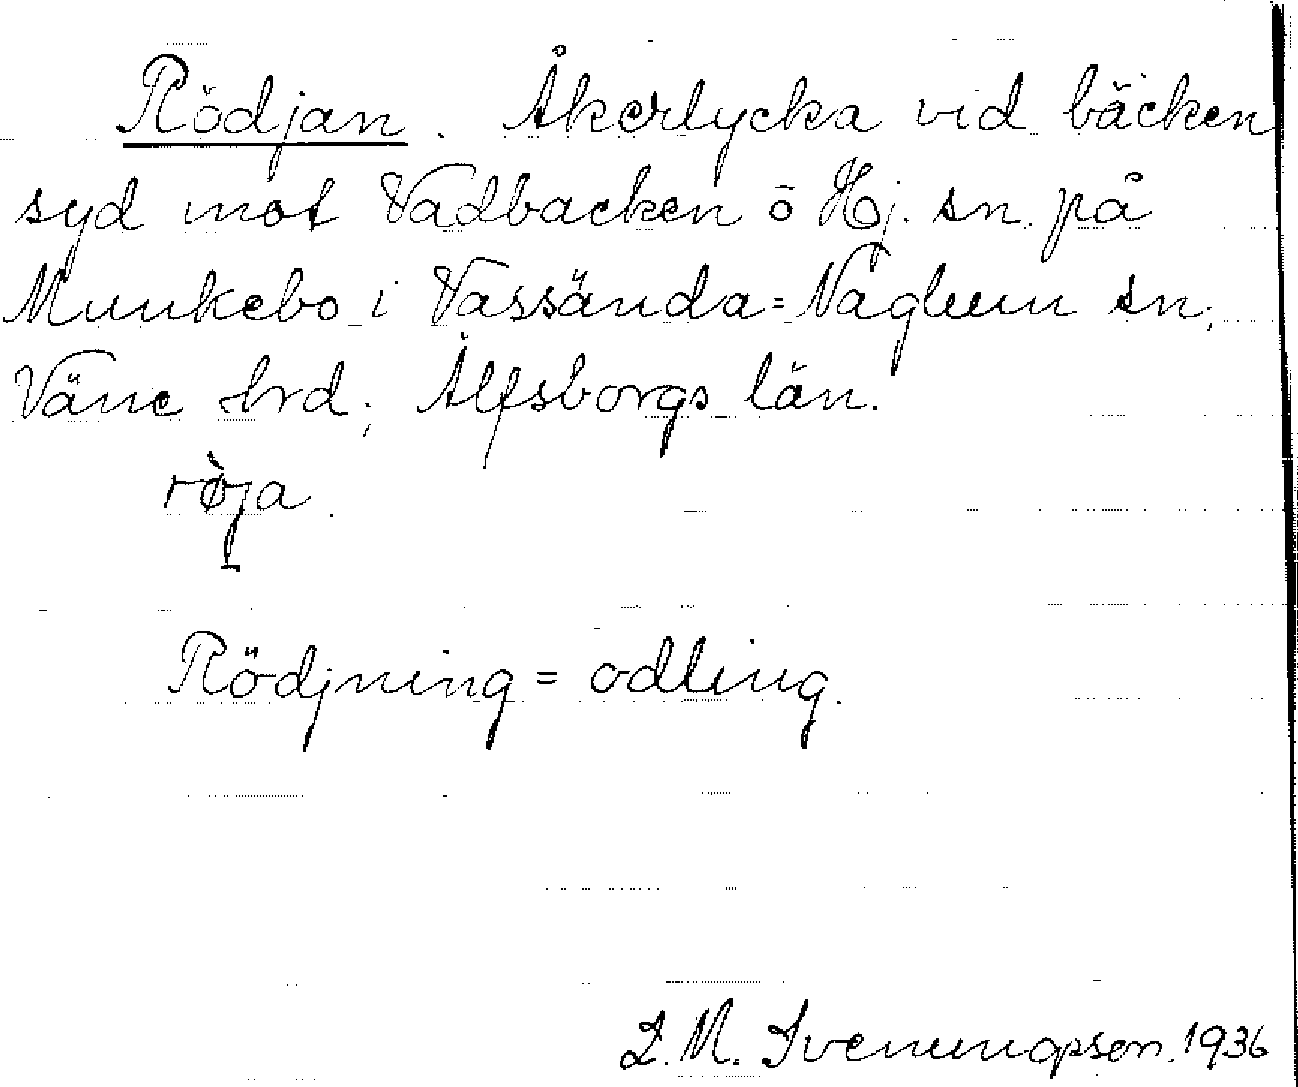 Rödjan. Åkerlycka vid bäcken
syd mot Vadbacken ö Hj. sn. på
Munkebo i Vassända=Naglum sn,
Väne hrd, Älfsborgs län.
rø̀ja.
Rödjning = odling.
L. M. Svenungsson. 1936